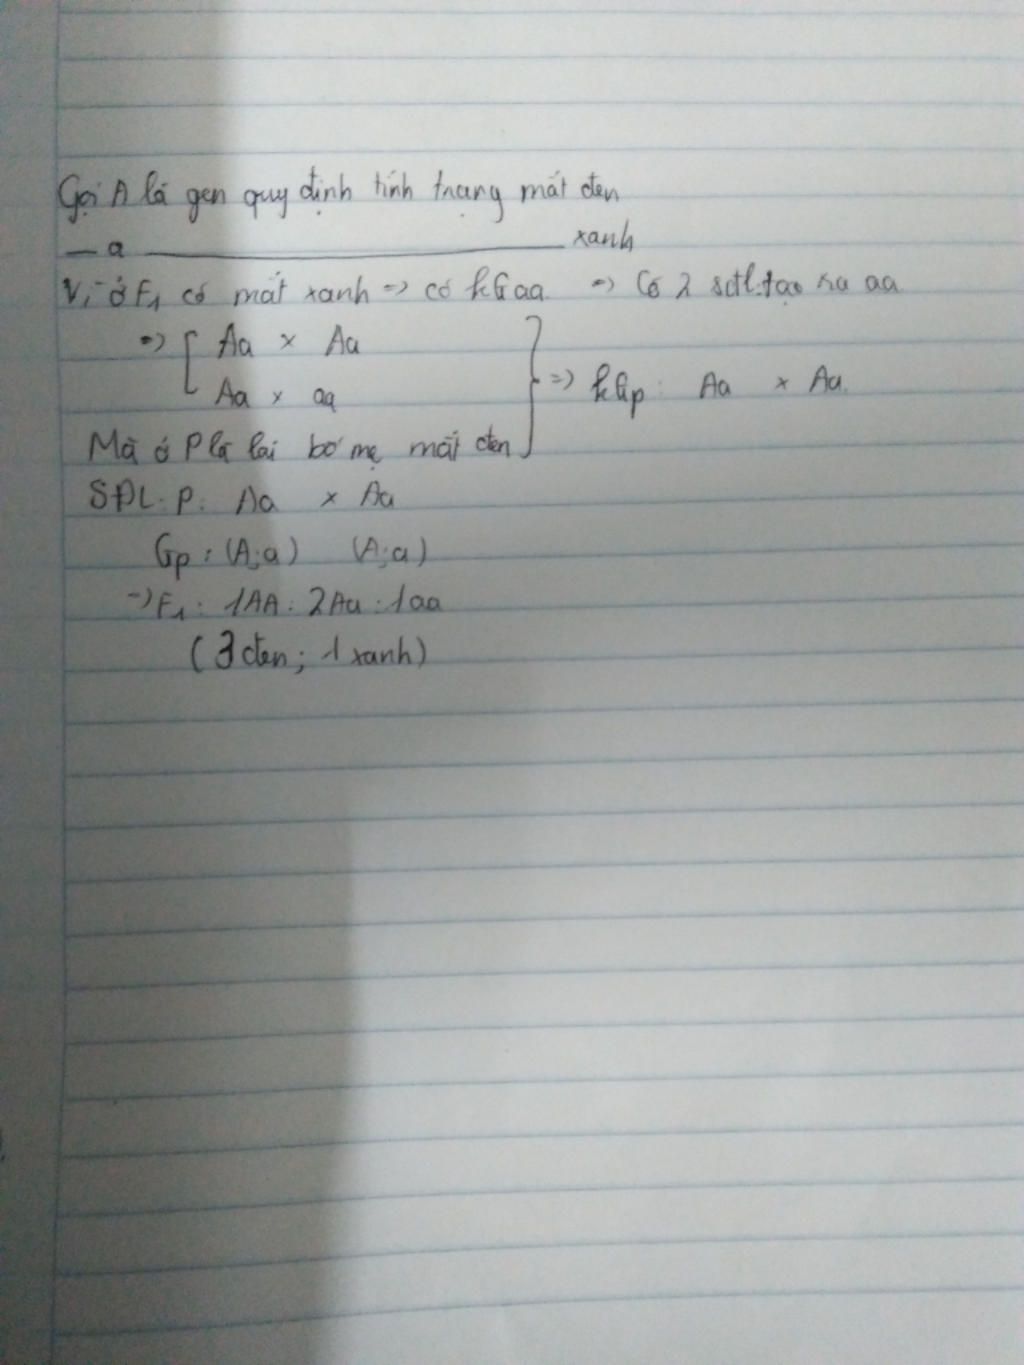 Gọi A là gen quy định tính trạng mắt đen
— a ———————— xanh
Vì ở F1 có mắt xanh => có kG aa => Có 2 sđl tạo ra aa
=> [ Aa × Aa
Aa × aa } => kGp: Aa × Aa
Mà ở P là lai bố mẹ mắt đen
SĐL: P: Aa × Aa
Gp: (A;a) (A;a)
=> F1: 1AA : 2Aa : 1aa
(3 đen; 1 xanh)